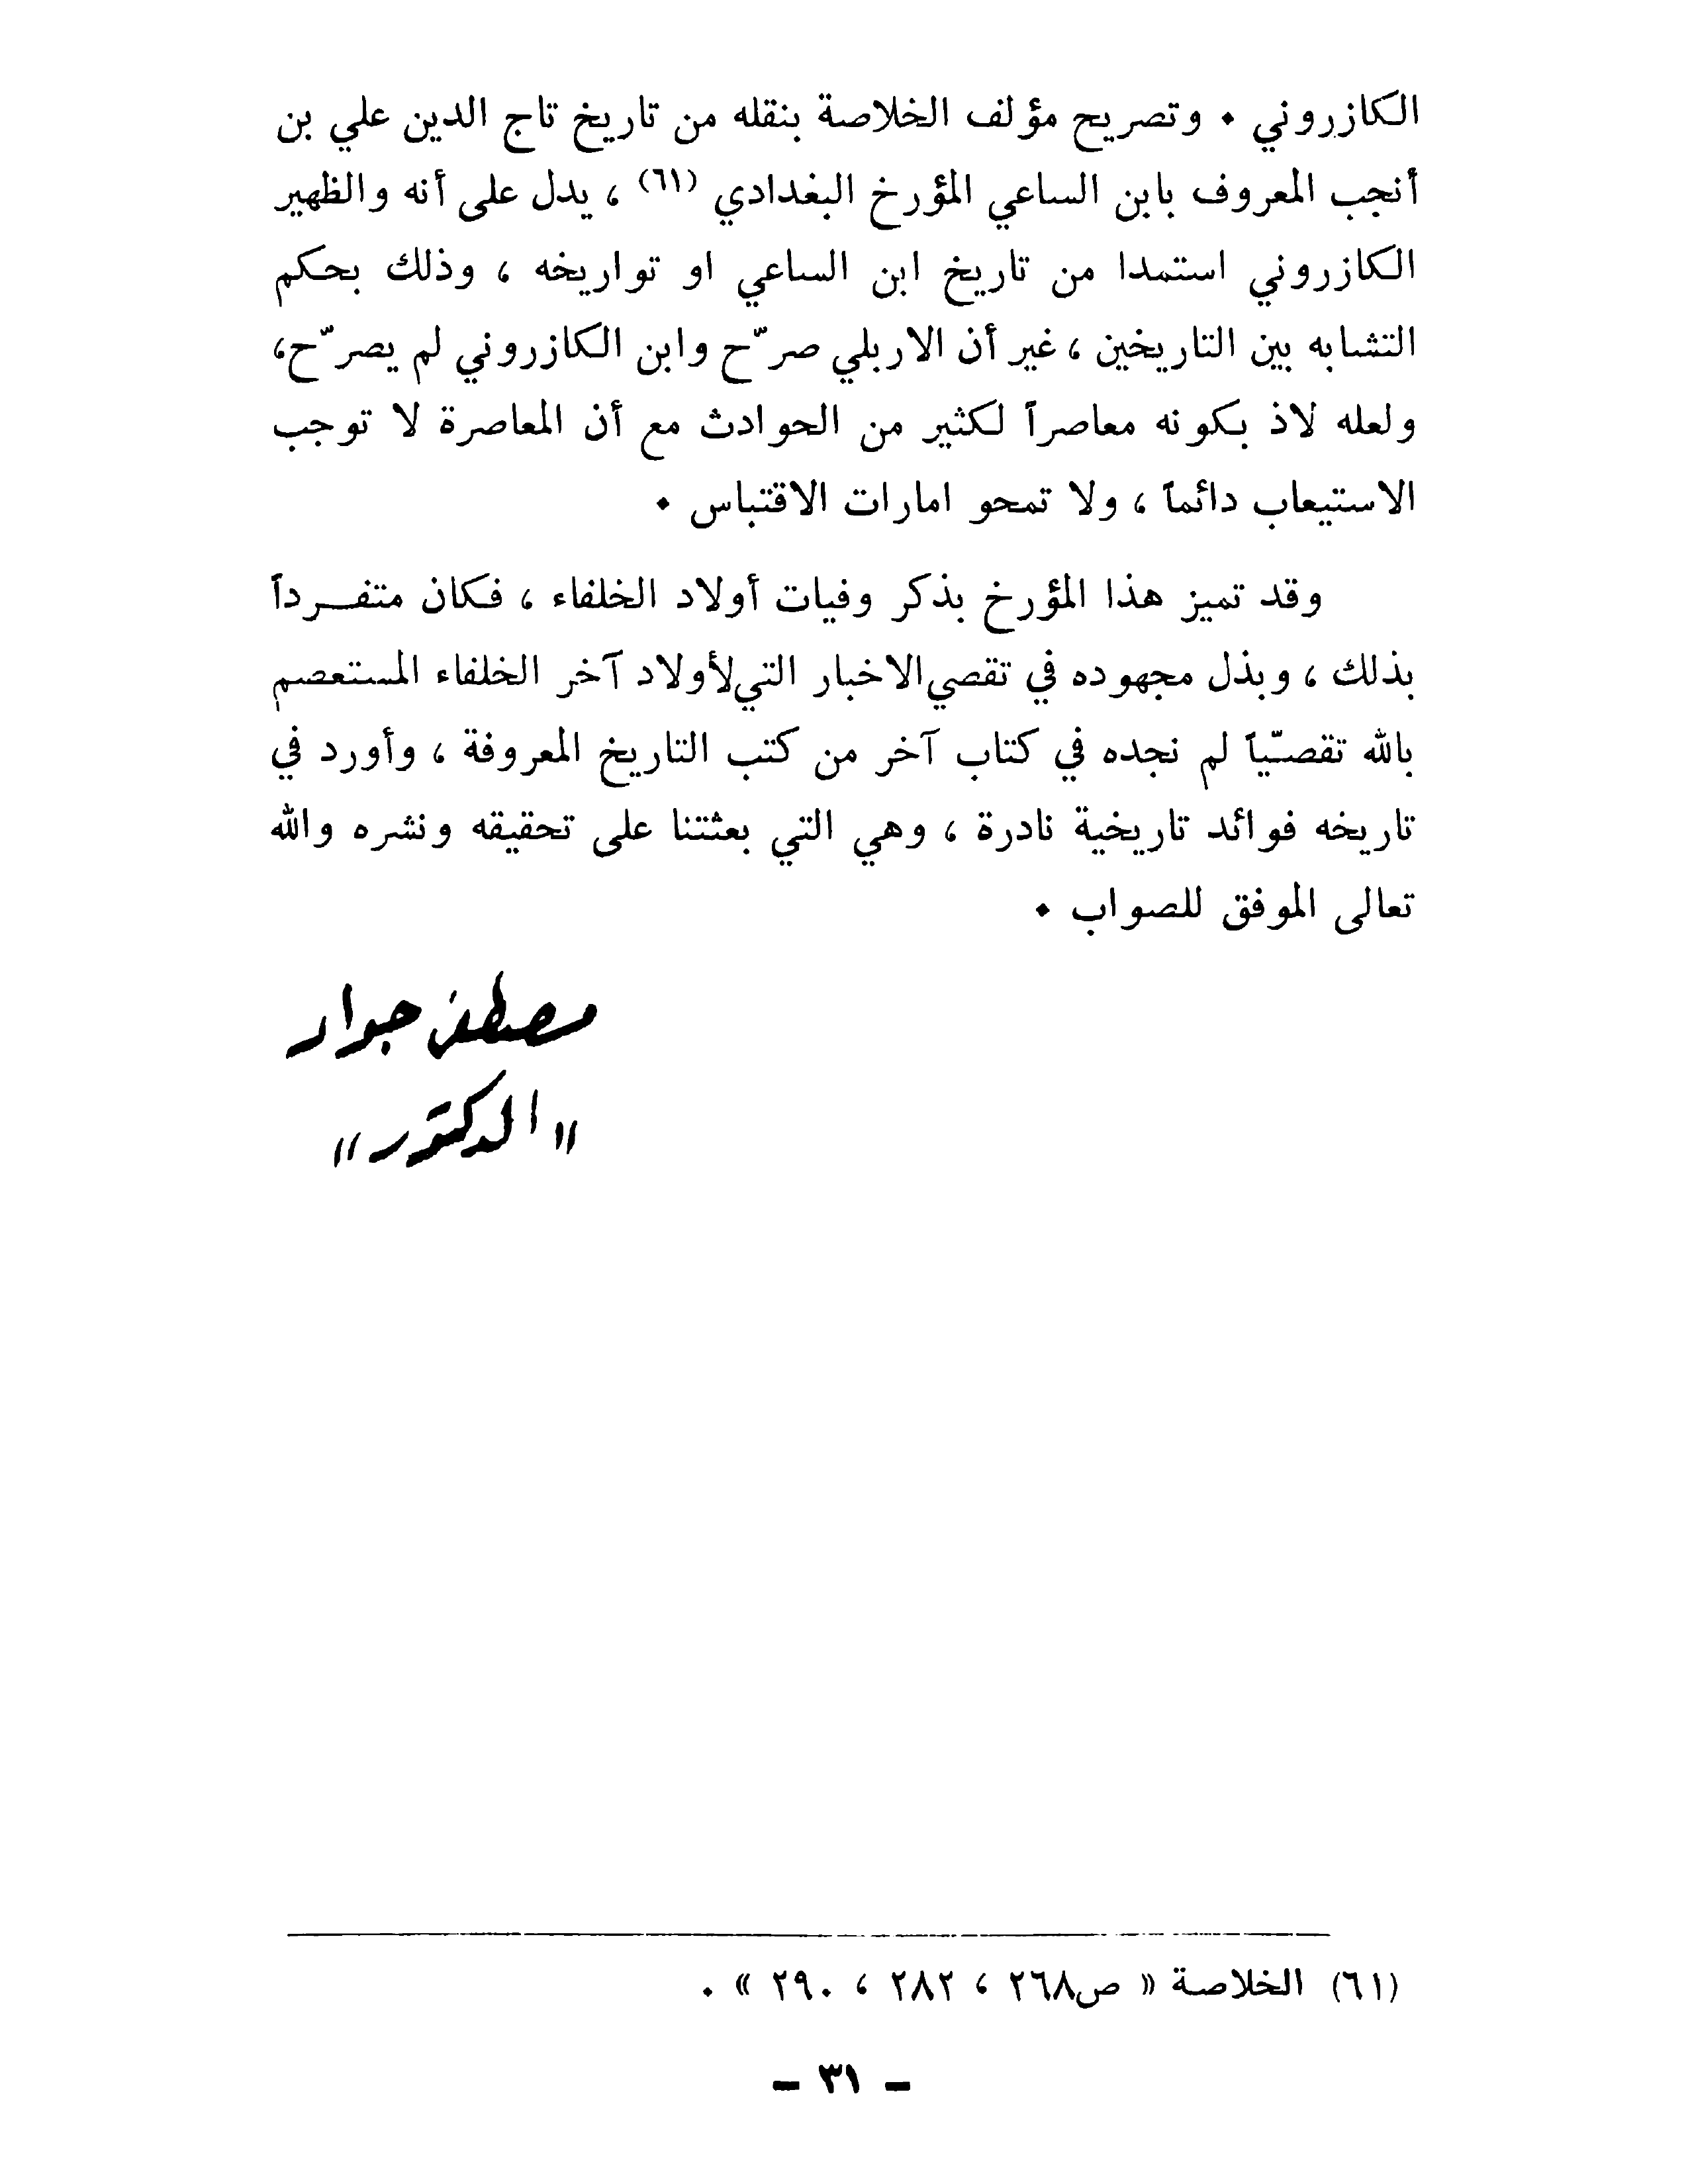 الكازروني ٠ وتصريح مؤلف الخلاصة بنقله من تاريخ تاج الدين علي بن
أنجب المعروف بابن الساعي المؤرخ البغدادي (٦١) ، يدل على أنه والظهير
الكازروني استمدا من تاريخ ابن الساعي او تواريخه ، وذلك بحكم
التشابه بين التاريخين ، غير أن الاربلي صرّح وابن الكازروني لم يصرّح،
ولعله لاذ بكونه معاصراً لكثير من الحوادث مع أن المعاصرة لا توجب
الاستيعاب دائماً ، ولا تمحو امارات الاقتباس ٠
وقد تميز هذا المؤرخ بذكر وفيات أولاد الخلفاء ، فكان متفـــرداً
بذلك ، وبذل مجهوده في تقصي الاخبار التي لأولاد آخر الخلفاء المستعصم
بالله تقصّياً لم نجده في كتاب آخر من كتب التاريخ المعروفة ، وأورد في
تاريخه فوائد تاريخية نادرة ، وهي التي بعثتنا على تحقيقه ونشره والله
تعالى الموفق للصواب ٠
مصطفى جواد
"الدكتور"
(٦١) الخلاصة « ص٢٦٨ ، ٢٨٢ ، ٢٩٠ » .
- ٣١ -